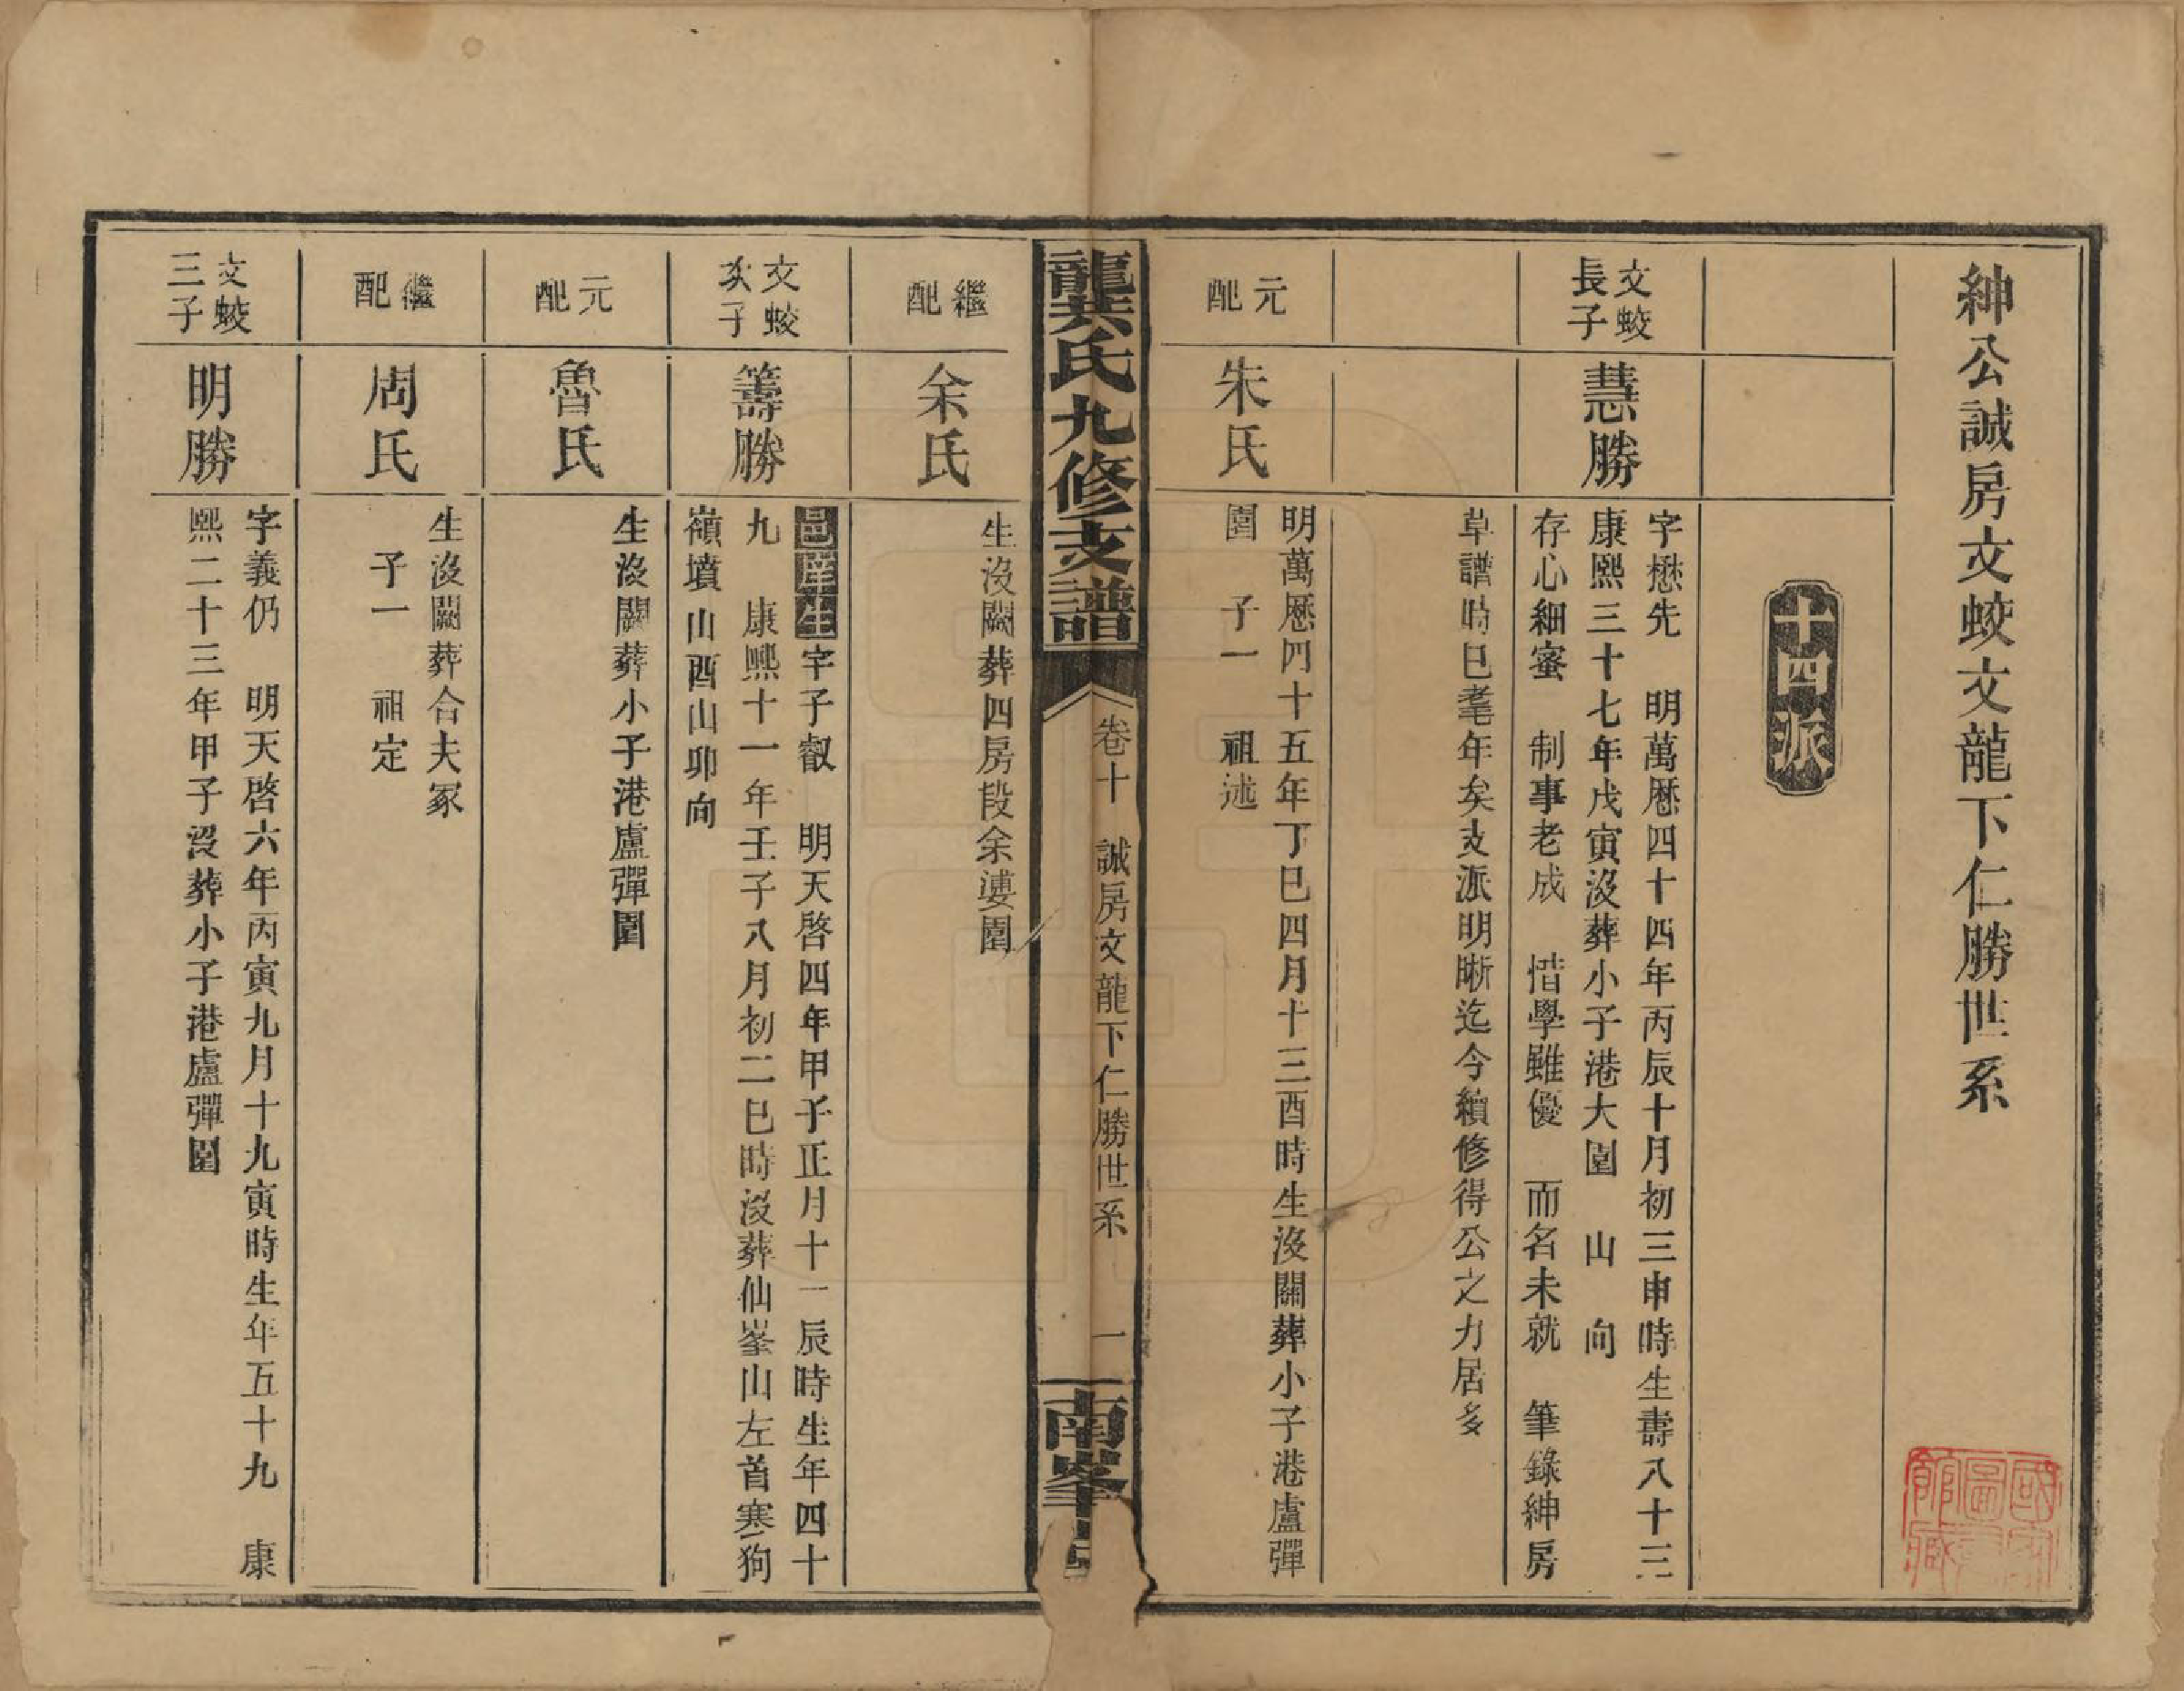 紳公誠房文蛟文龍下仁勝世系
十四派
文蛟
長子
慧勝
字懋先　明萬曆四十四年丙辰十月初三申時生壽八十三
康熙三十七年戊寅沒葬小子港大園　山　向
存心細密　制事老成　惜學雖優　而名未就　筆錄紳房
草譜時已耄年矣支派明晰迄今續修得公之力居多
元
配
朱氏
明萬曆四十五年丁巳四月十三酉時生沒闕葬小子港盧彈
園　子一　祖述
龔氏九修支譜
卷十　誠房文龍下仁勝世系
一
南峯
繼
配
余氏
生沒闕葬四房段余婆園
文蛟
次子
籌勝
邑庠生字子叡　明天啓四年甲子正月十一辰時生年四十
九　康熙十一年壬子八月初二巳時沒葬仙峯山左首寒狗
嶺墳山酉山卯向
元
配
魯氏
生沒闕葬小子港盧彈園
繼
配
周氏
生沒闕葬合夫冢
子一　祖定
文蛟
三子
明勝
字義仍　明天啓六年丙寅九月十九寅時生年五十九　康
熙二十三年甲子沒葬小子港盧彈園
國家
圖書
館藏